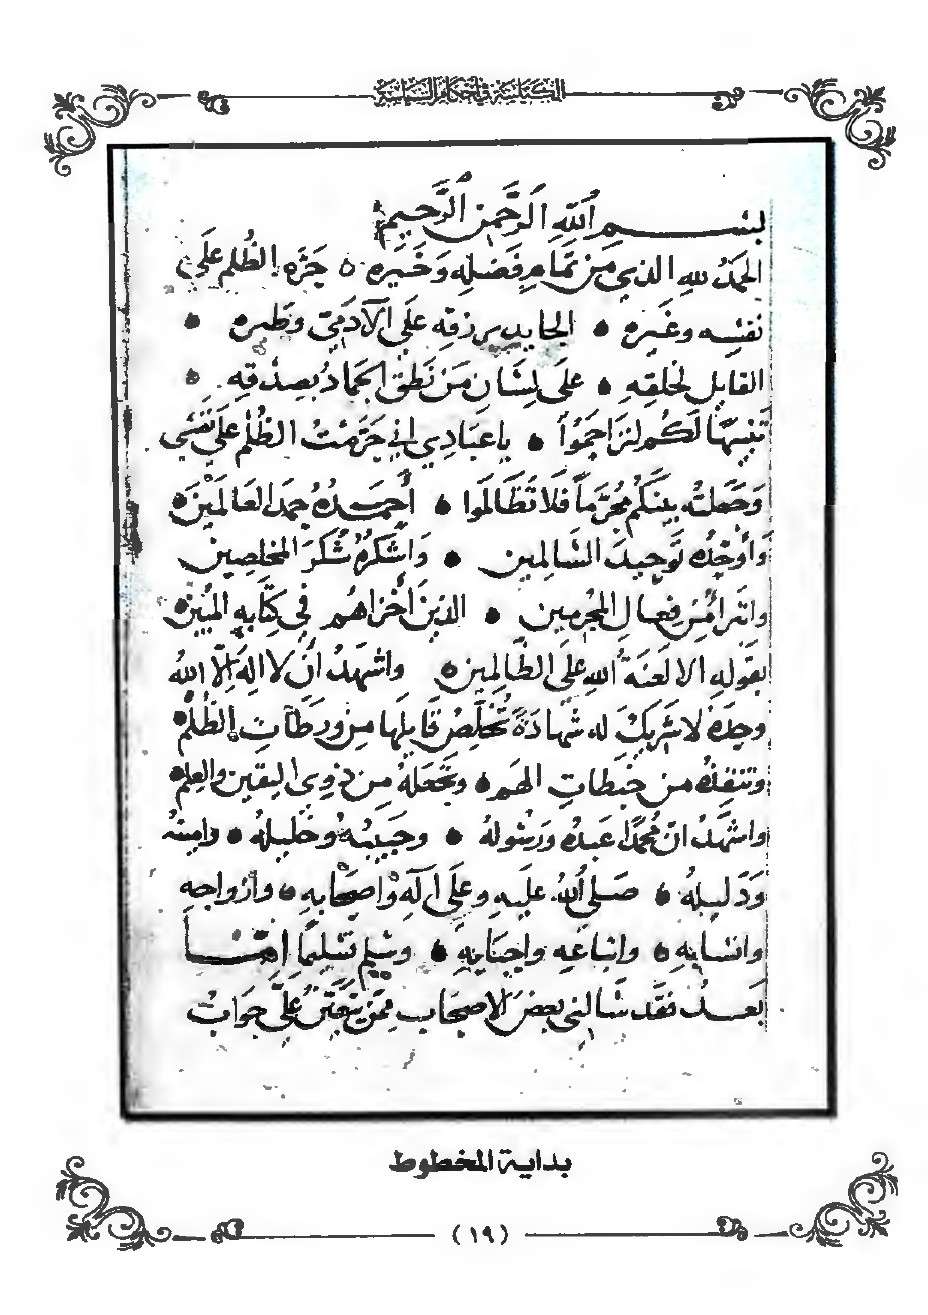 الكتابية في أحكام السبانية
بسم الله الرحمن الرحيم
الحمد لله الذي من تمام فضله وخيره ٥ حرم الظلم على
نفسه وغيره • الجايد برزقه على الآدمي وطيره •
القايل لخلقه • على لسان من نطق الجماد بصدقه •
تنبيها لكم لتراحموا • يا عبادي اني حرمت الظلم على نفسي
وجعلته بينكم محرما فلا تظالموا • أحمده حمد العالمين •
وأوحده توحيد السالمين • وأشكره شكر المخلصين
واتبرا من فعال المجرمين • الذين أخزاهم في كتابه المبين •
بقوله الا لعنة الله على الظالمين ٥ واشهد ان لا اله الا الله
وحده لا شريك له شهادة تخلص قايلها من ورطات الظلم •
وتنقذه من خبطات الهم • وتجعله من ذوى اليقين والعلم •
واشهد ان محمدا عبده ورسوله • وحبيبه وخليله • وامينه
ودليله • صلى الله عليه وعلى اله واصحابه • وازواجه
وانسابه • واتباعه واحبابه • وسلم تسليما امـــا
بعـد فقد سالنى بعض الاصحاب ممن يتعين على جواب
بداية المخطوط
(١٩)